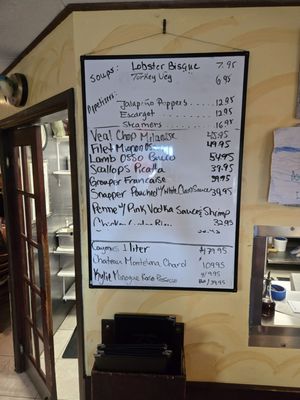 Soups: Lobster Bisque 7.95
Turkey Veg 6.95
Appetizers:
Jalapiño Poppers .... 12.95
Escargot ........ 12.95
Steamers ........ 16.95
Veal Chop Milanaise
Filet Mignon Os 49.95
Lamb Osso Bucco 54.95
Scallops Picatta 39.95
Grouper Francaise 39.95
Snapper Poached w/ White Clam Sauce 39.95
Penne w/ Pink Vodka Sauce & Shrimp
32.95
Caymus 1 liter $179.95
Chateau Montelena Chard
Kylie Minogue Rose Prosecco